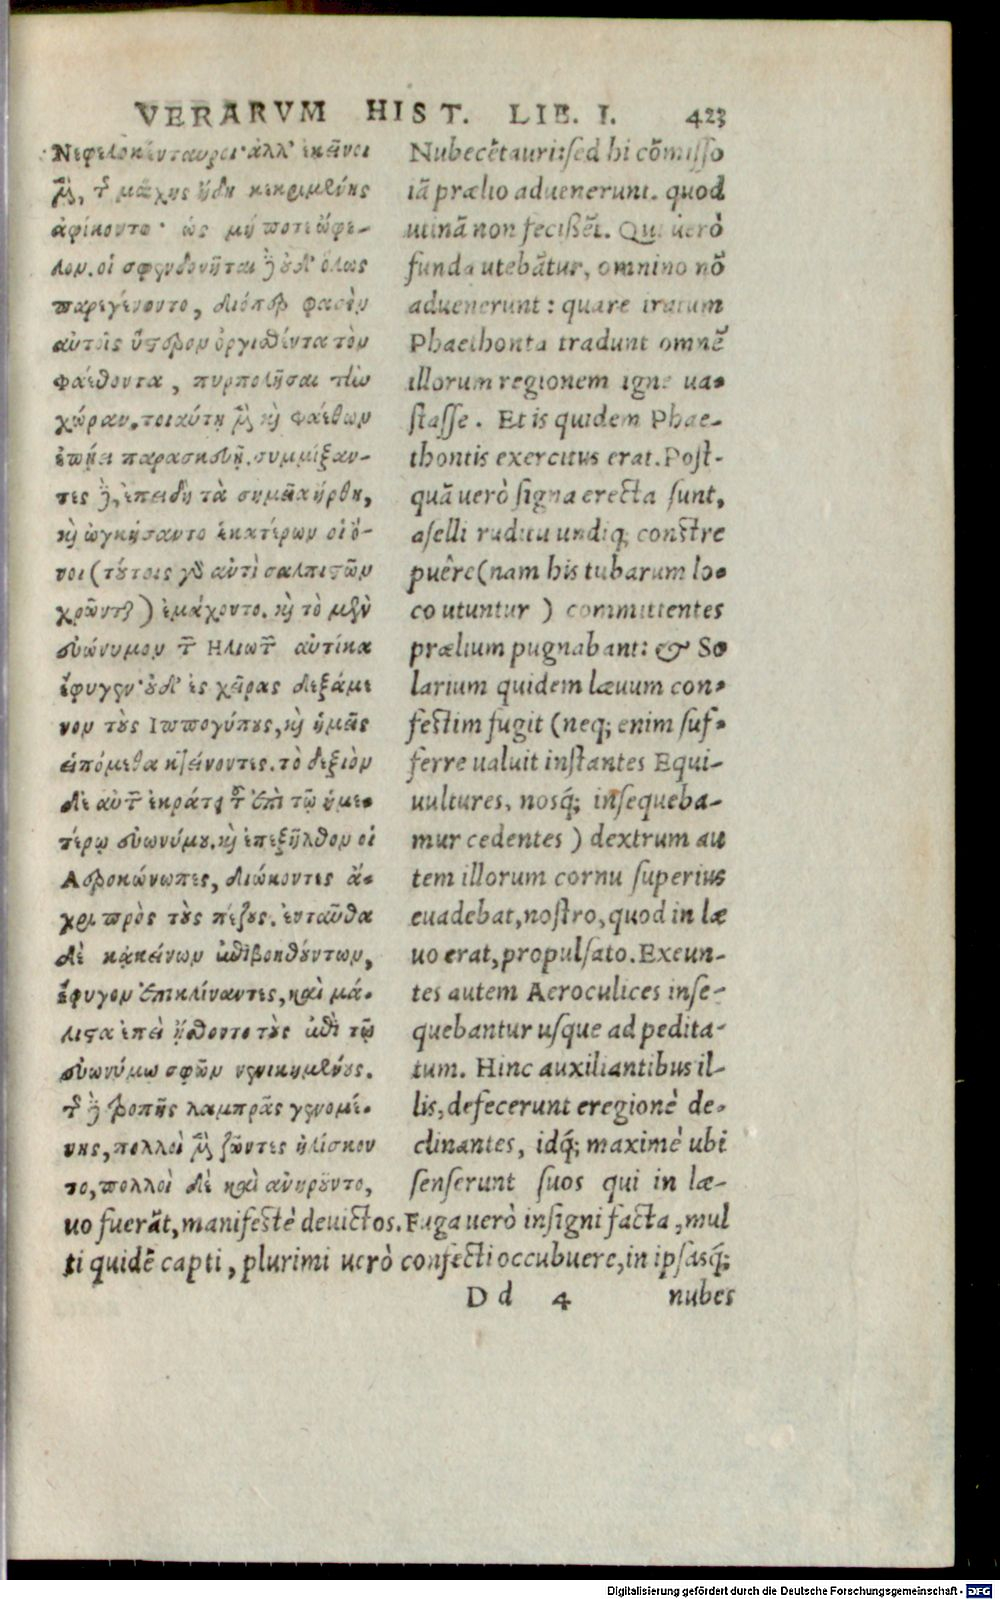 VERARVM HIST. LIB. I. 423
Νεφελοκένταυροι· ἀλλ' ἐκεῖνοι
μὲν, τῆς μάχης ἤδη κεκριμένης
ἀφίκοντο· ὡς μή ποτε ὤφε-
λον. οἱ σφενδονῆται δὲ οὐδ' ὅλως
παρεγένοντο, διόπερ φασὶν
αὐτοῖς ὕστερον ὀργισθέντα τὸν
Φαέθοντα, πυρπολῆσαι τὴν
χώραν. τοιαύτη μὲν καὶ Φαέθων
ἐπῄει παρασκευῇ. συμμίξαν-
τες δὲ, ἐπειδὴ τὰ σημεῖα ἤρθη,
καὶ ὠγκήσαντο ἑκατέρων οἱ ὄ-
νοι (τούτοις γὰρ ἀντὶ σαλπιστῶν
χρῶνται) ἐμάχοντο. καὶ τὸ μὲν
εὐώνυμον τῶν Ηλιωτῶν αὐτίκα
ἔφυγεν· οὐδ' ἐς χεῖρας δεξάμε
νον τοὺς Ιππογύπους, καὶ ἡμεῖς
εἱπόμεθα κτείνοντες. τὸ δεξιὸν
δὲ αὐτῶν ἐκράτει τοῦ ἐπὶ τῷ ἡμε-
τέρῳ εὐωνύμου. καὶ ἐπεξῆλθον οἱ
Αεροκώνωπες, διώκοντες ἄ-
χρι πρὸς τοὺς πέζους. ἐνταῦθα
δὲ κᾀκείνων ἐπιβοηθούντων,
ἔφυγον ἐπικλίναντες, καὶ μά-
λιστα ἐπεὶ ᾔσθοντο τοὺς ἐπὶ τῷ
εὐωνύμῳ σφῶν νενικημένους.
τῆς δὲ τροπῆς λαμπρᾶς γενομέ-
νης, πολλοὶ μὲν ζῶντες ἡλίσκον
το, πολλοὶ δὲ καὶ ἀνῃροῦντο,
Nubecẽtauri: sed hi cõmisso
iã prælio aduenerunt. quod
utinã non fecissẽt. Qui uerò
funda utebãtur, omnino nõ
aduenerunt: quare iratum
Phaethonta tradunt omnẽ
illorum regionem igne ua-
stasse. Et is quidem Phae-
thontis exercitus erat. Post-
quã uerò signa erecta sunt,
aselli ruditu undiq; constre
puêre (nam his tubarum lo-
co utuntur) committentes
prælium pugnabant: & So
larium quidem læuum con-
festim fugit (neq; enim suf-
ferre ualuit instantes Equi-
uultures, nosq́; insequeba-
mur cedentes) dextrum au
tem illorum cornu superius
euadebat, nostro, quod in læ
uo erat, propulsato. Exeun-
tes autem Aeroculices inse-
quebantur usque ad pedita-
tum. Hinc auxiliantibus il-
lis, defecerunt eregionè de-
clinantes, idq́; maximè ubi
senserunt suos qui in læ-
uo fuerãt, manifestè deuictos. Fuga uerò insigni facta, mul
ti quidẽ capti, plurimi uerò confecti occubuere, in ipsasq́;
Dd 4 nubes
Digitalisierung gefördert durch die Deutsche Forschungsgemeinschaft - DFG